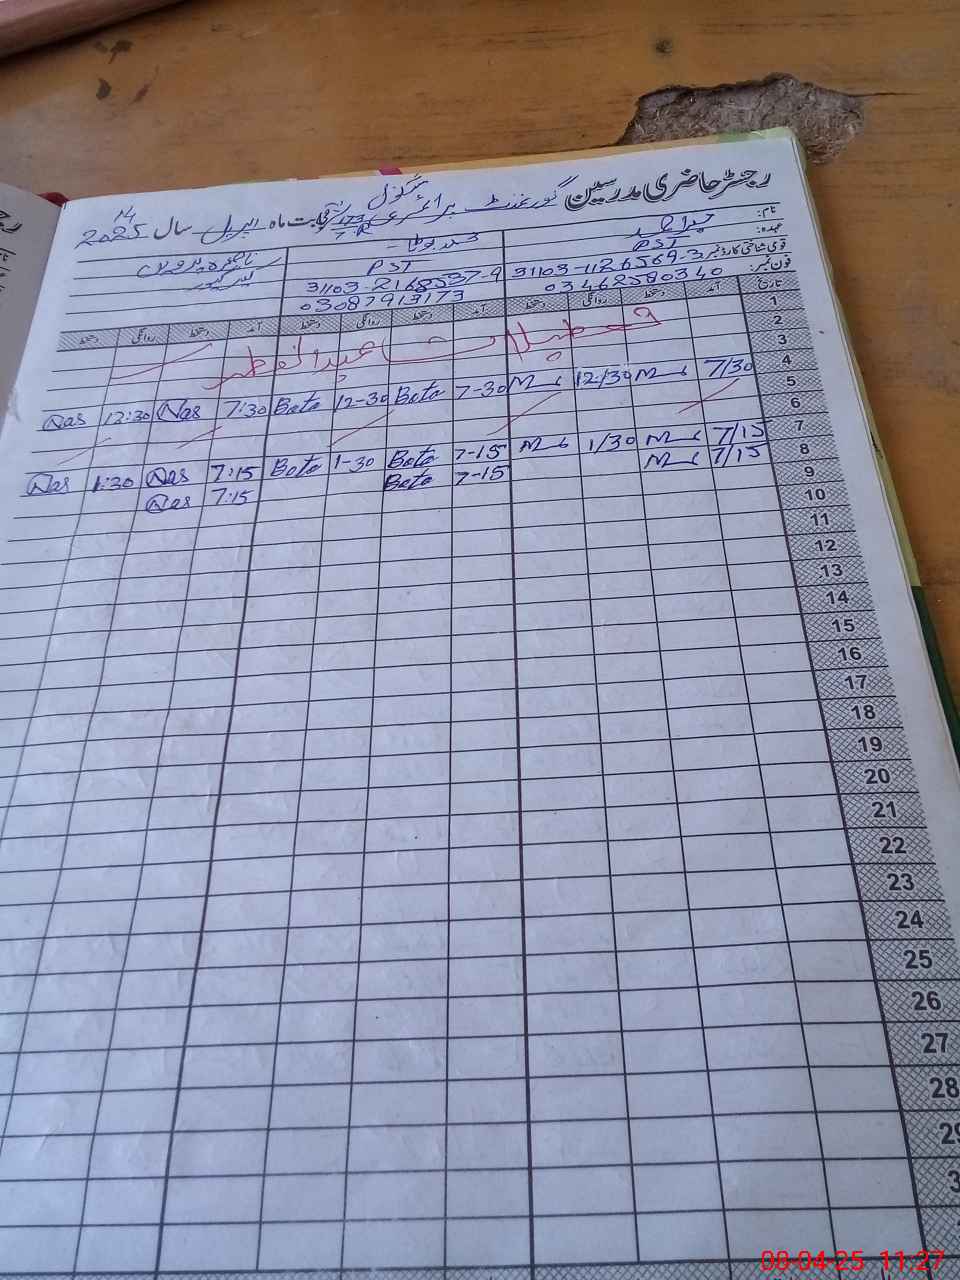 رجسٹر حاضری مدرسین گورنمنٹ پرائمری سکول 173/7-R بابت ماہ اپریل سال 2025
نام:
عہدہ: PST PST
قومی شناختی کارڈ نمبر: 31103-1126569-3 31103-2168537-9
فون نمبر: 03462580340 03087913173
تاریخ آمد دستخط روانگی دستخط آمد دستخط روانگی دستخط آمد دستخط روانگی دستخط
1
2
3
تعطیلات عید الفطر
4
5 7/30 12/30 7-30 Bota 12-30 Bota 7:30 Nas 12:30 Nas
6
7
8 7/15 1/30 7-15 Bota 1-30 Bota 7:15 Nas 1:30 Nas
9 7/15 7-15 Bota 7:15 Nas
10
11
12
13
14
15
16
17
18
19
20
21
22
23
24
25
26
27
28
29
08-04-25 11:27